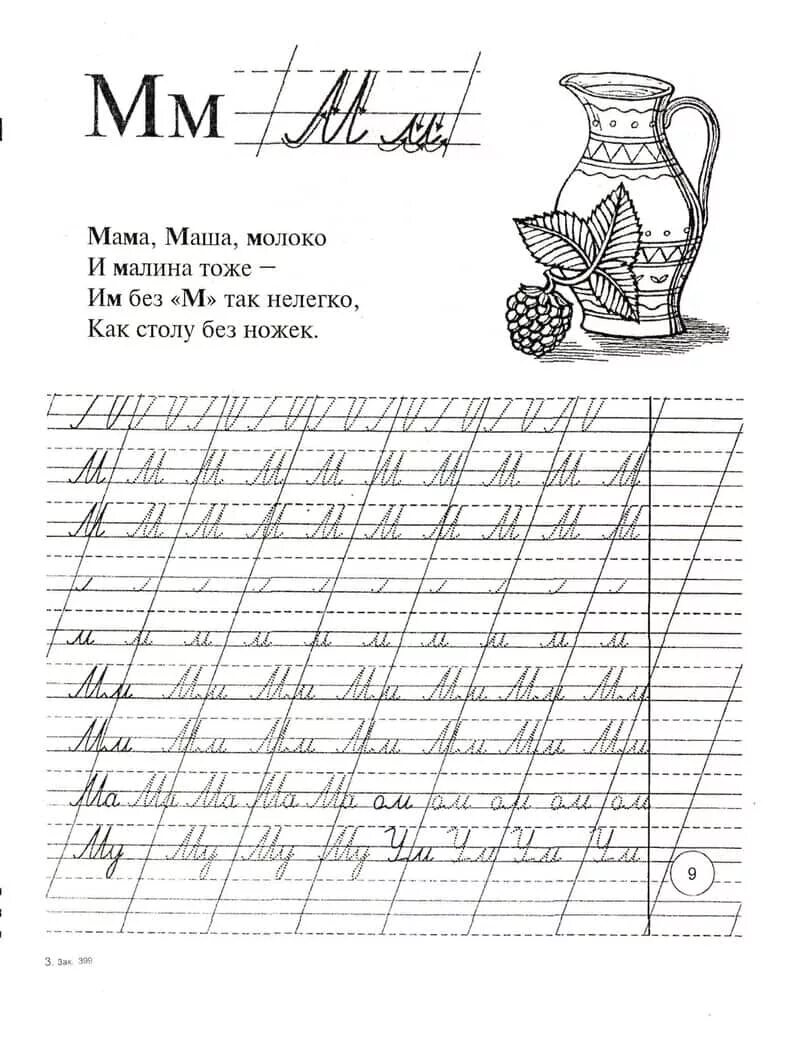 Мм М м
Мама, Маша, молоко
И малина тоже –
Им без «М» так нелегко,
Как столу без ножек.
М М М М М М М М М М
М М М М М М М М М М
м м м м м м м м м м
Мм Мм Мм Мм Мм Мм Мм
Мм Мм Мм Мм Мм Мм Мм
Ма Ма Ма Ма Ма ом ом ом ом ом
Му Му Му Му Ум Ум Ум Ум
9
3. Зак. 399